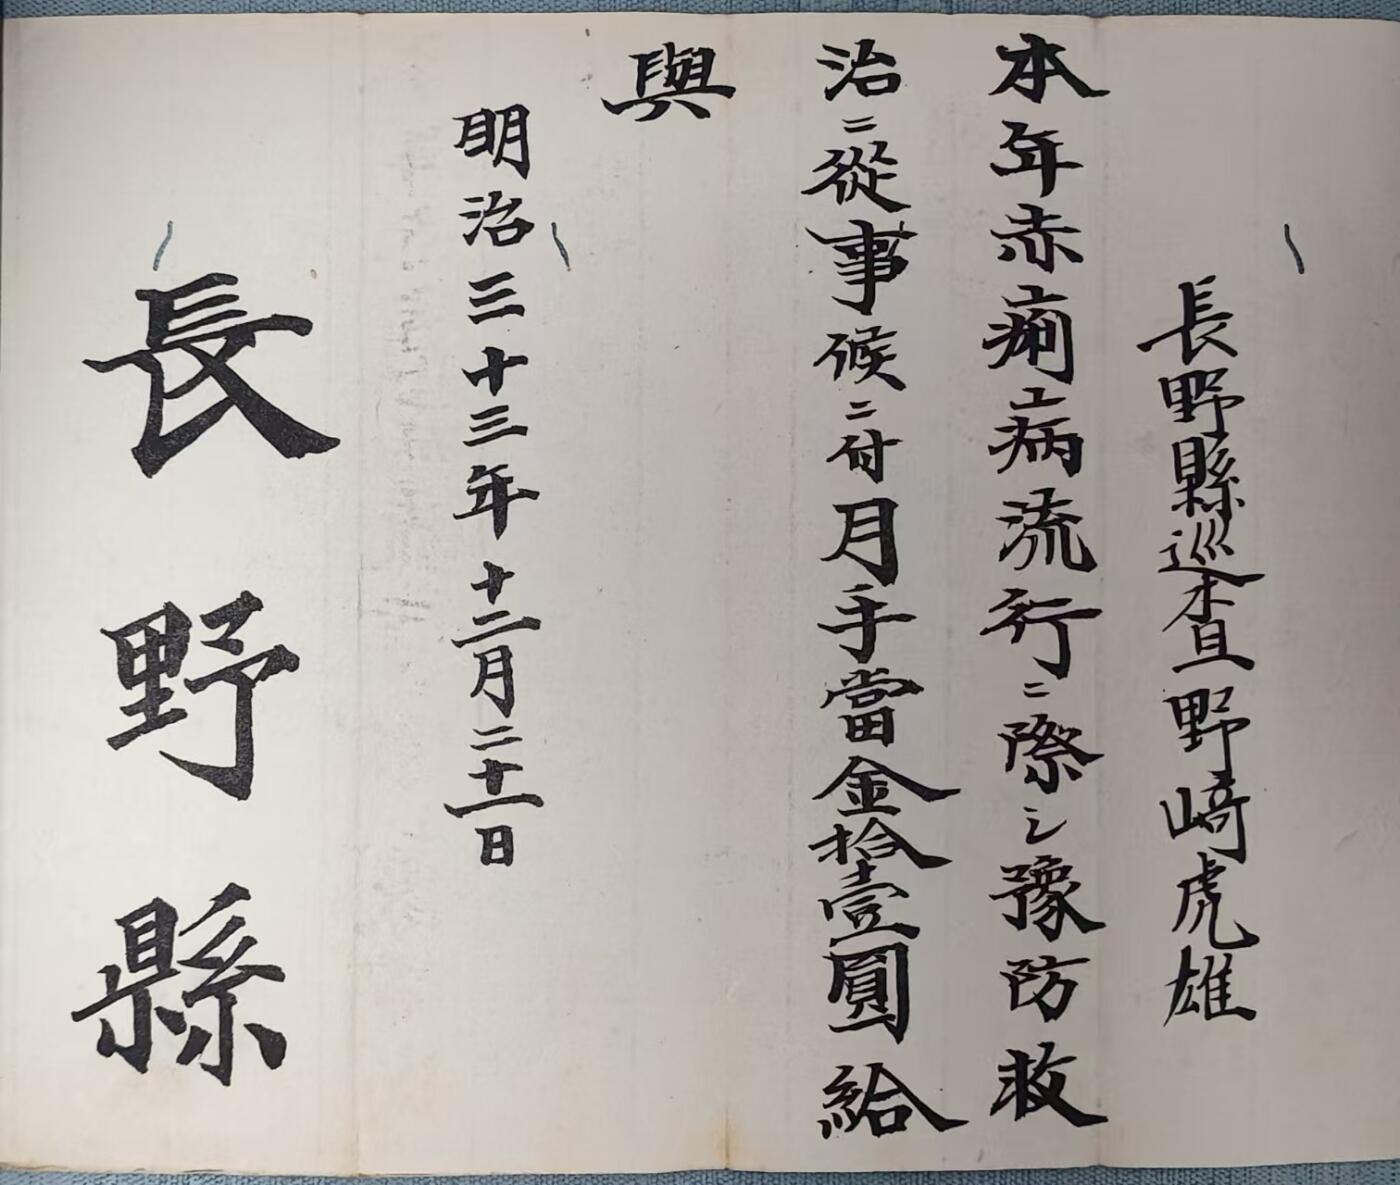 長野縣巡查野﨑虎雄
本年赤痢病流行ニ際シ豫防救
治ニ從事候ニ付月手當金拾壹圓給
與
明治三十三年十二月二十一日
長野縣